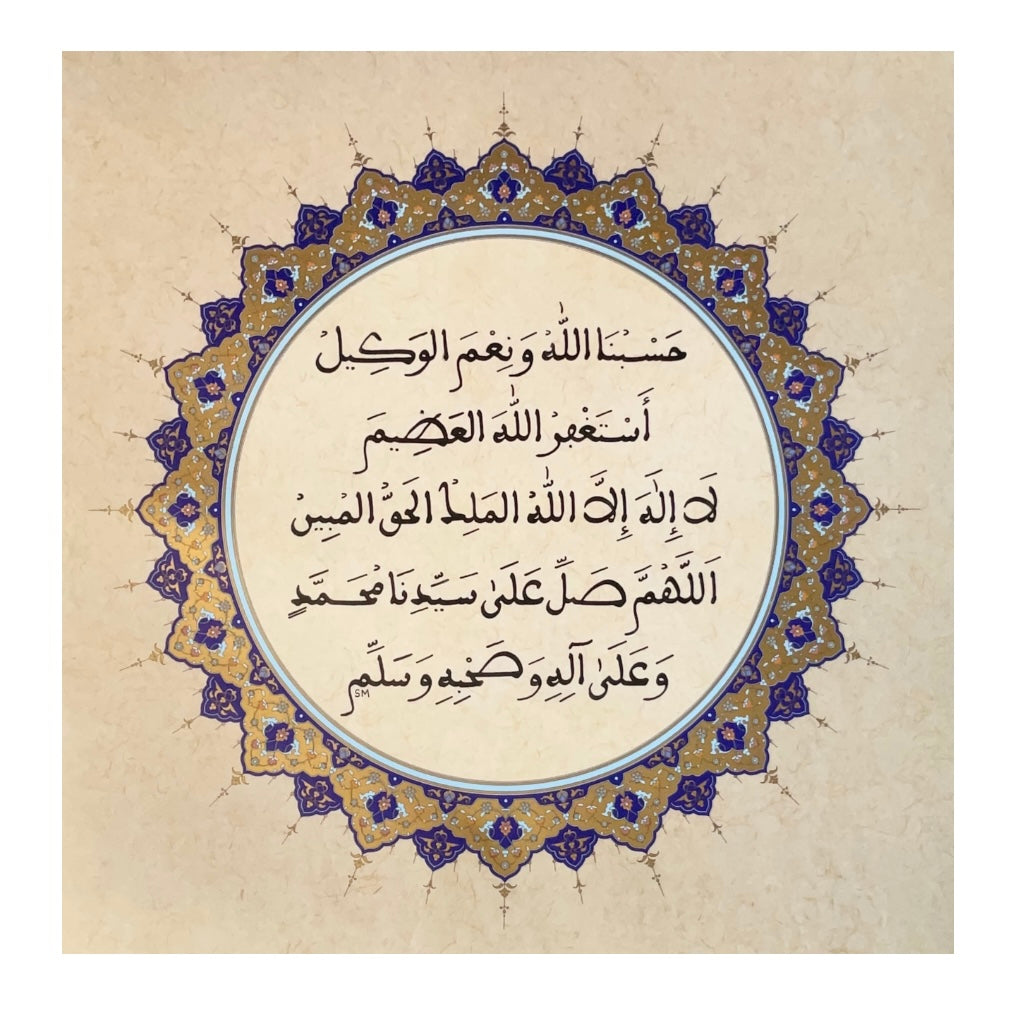 حَسْبُنَا اللّٰهُ وَنِعْمَ الوَكِيلُ
أَسْتَغْفِرُ اللّٰهَ العَظِيمَ
لَا إِلٰهَ إِلَّا اللّٰهُ المَلِكُ الحَقُّ المُبِينُ
اَللَّهُمَّ صَلِّ عَلَىٰ سَيِّدِنَا مُحَمَّدٍ
وَعَلَىٰ آلِهِ وَصَحْبِهِ وَسَلِّم
SM